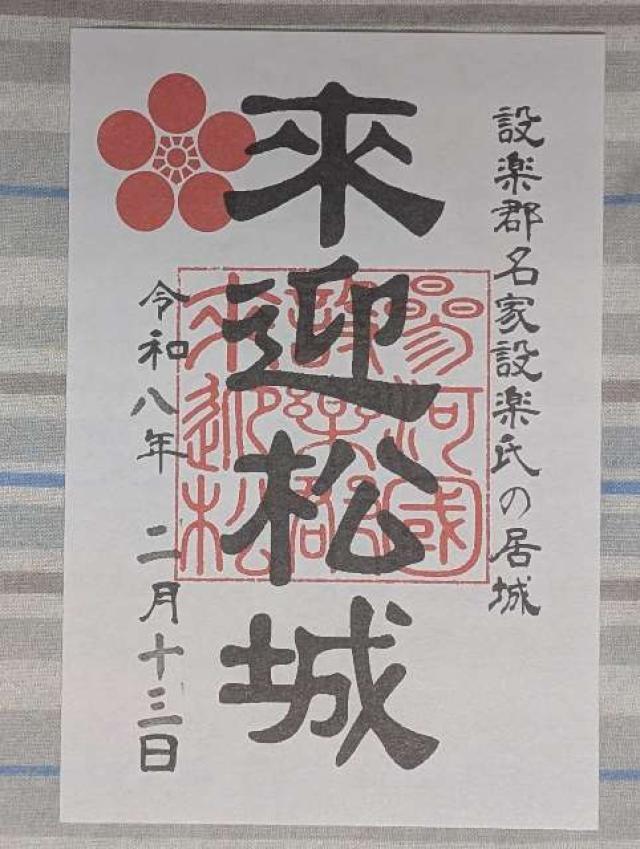 設楽郡名家設楽氏の居城
來迎松城
參河國
設樂郡
来迎松
令和八年 二月十三日